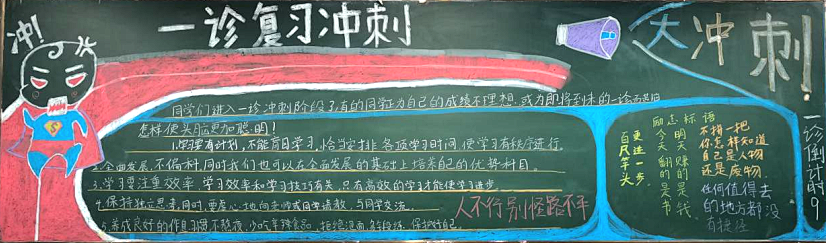 冲!
一诊复习冲刺
大冲刺
同学们进入一诊冲刺阶段了有的同学在为自己的成绩不理想,或为即将到来的一诊而
怎样使头脑更加聪明!
1.学习要有计划,不能盲目学习,恰当安排各项学习时间,使学习有秩序进行。
2.全面发展,不偏科,同时我们也可以在全面发展的基础上培养自己的优势科目。
3.学习要注重效率,学习效率和学习技巧有关,只有高效的学习才能使学习进步。
4.保持独立思考,同时,要虚心地向老师或同学请教,与同学交流。
5.养成良好的作息习惯,不熬夜,少吃辛辣食品,拒绝
人不行别怪路不平
励志标语
百尺竿头
更进一步
今天翻的是书
明天赚的是钱
不搏一把
你怎样知道
自己是人物
还是废物
任何值得去
的地方都没
有捷径
一诊倒计时9